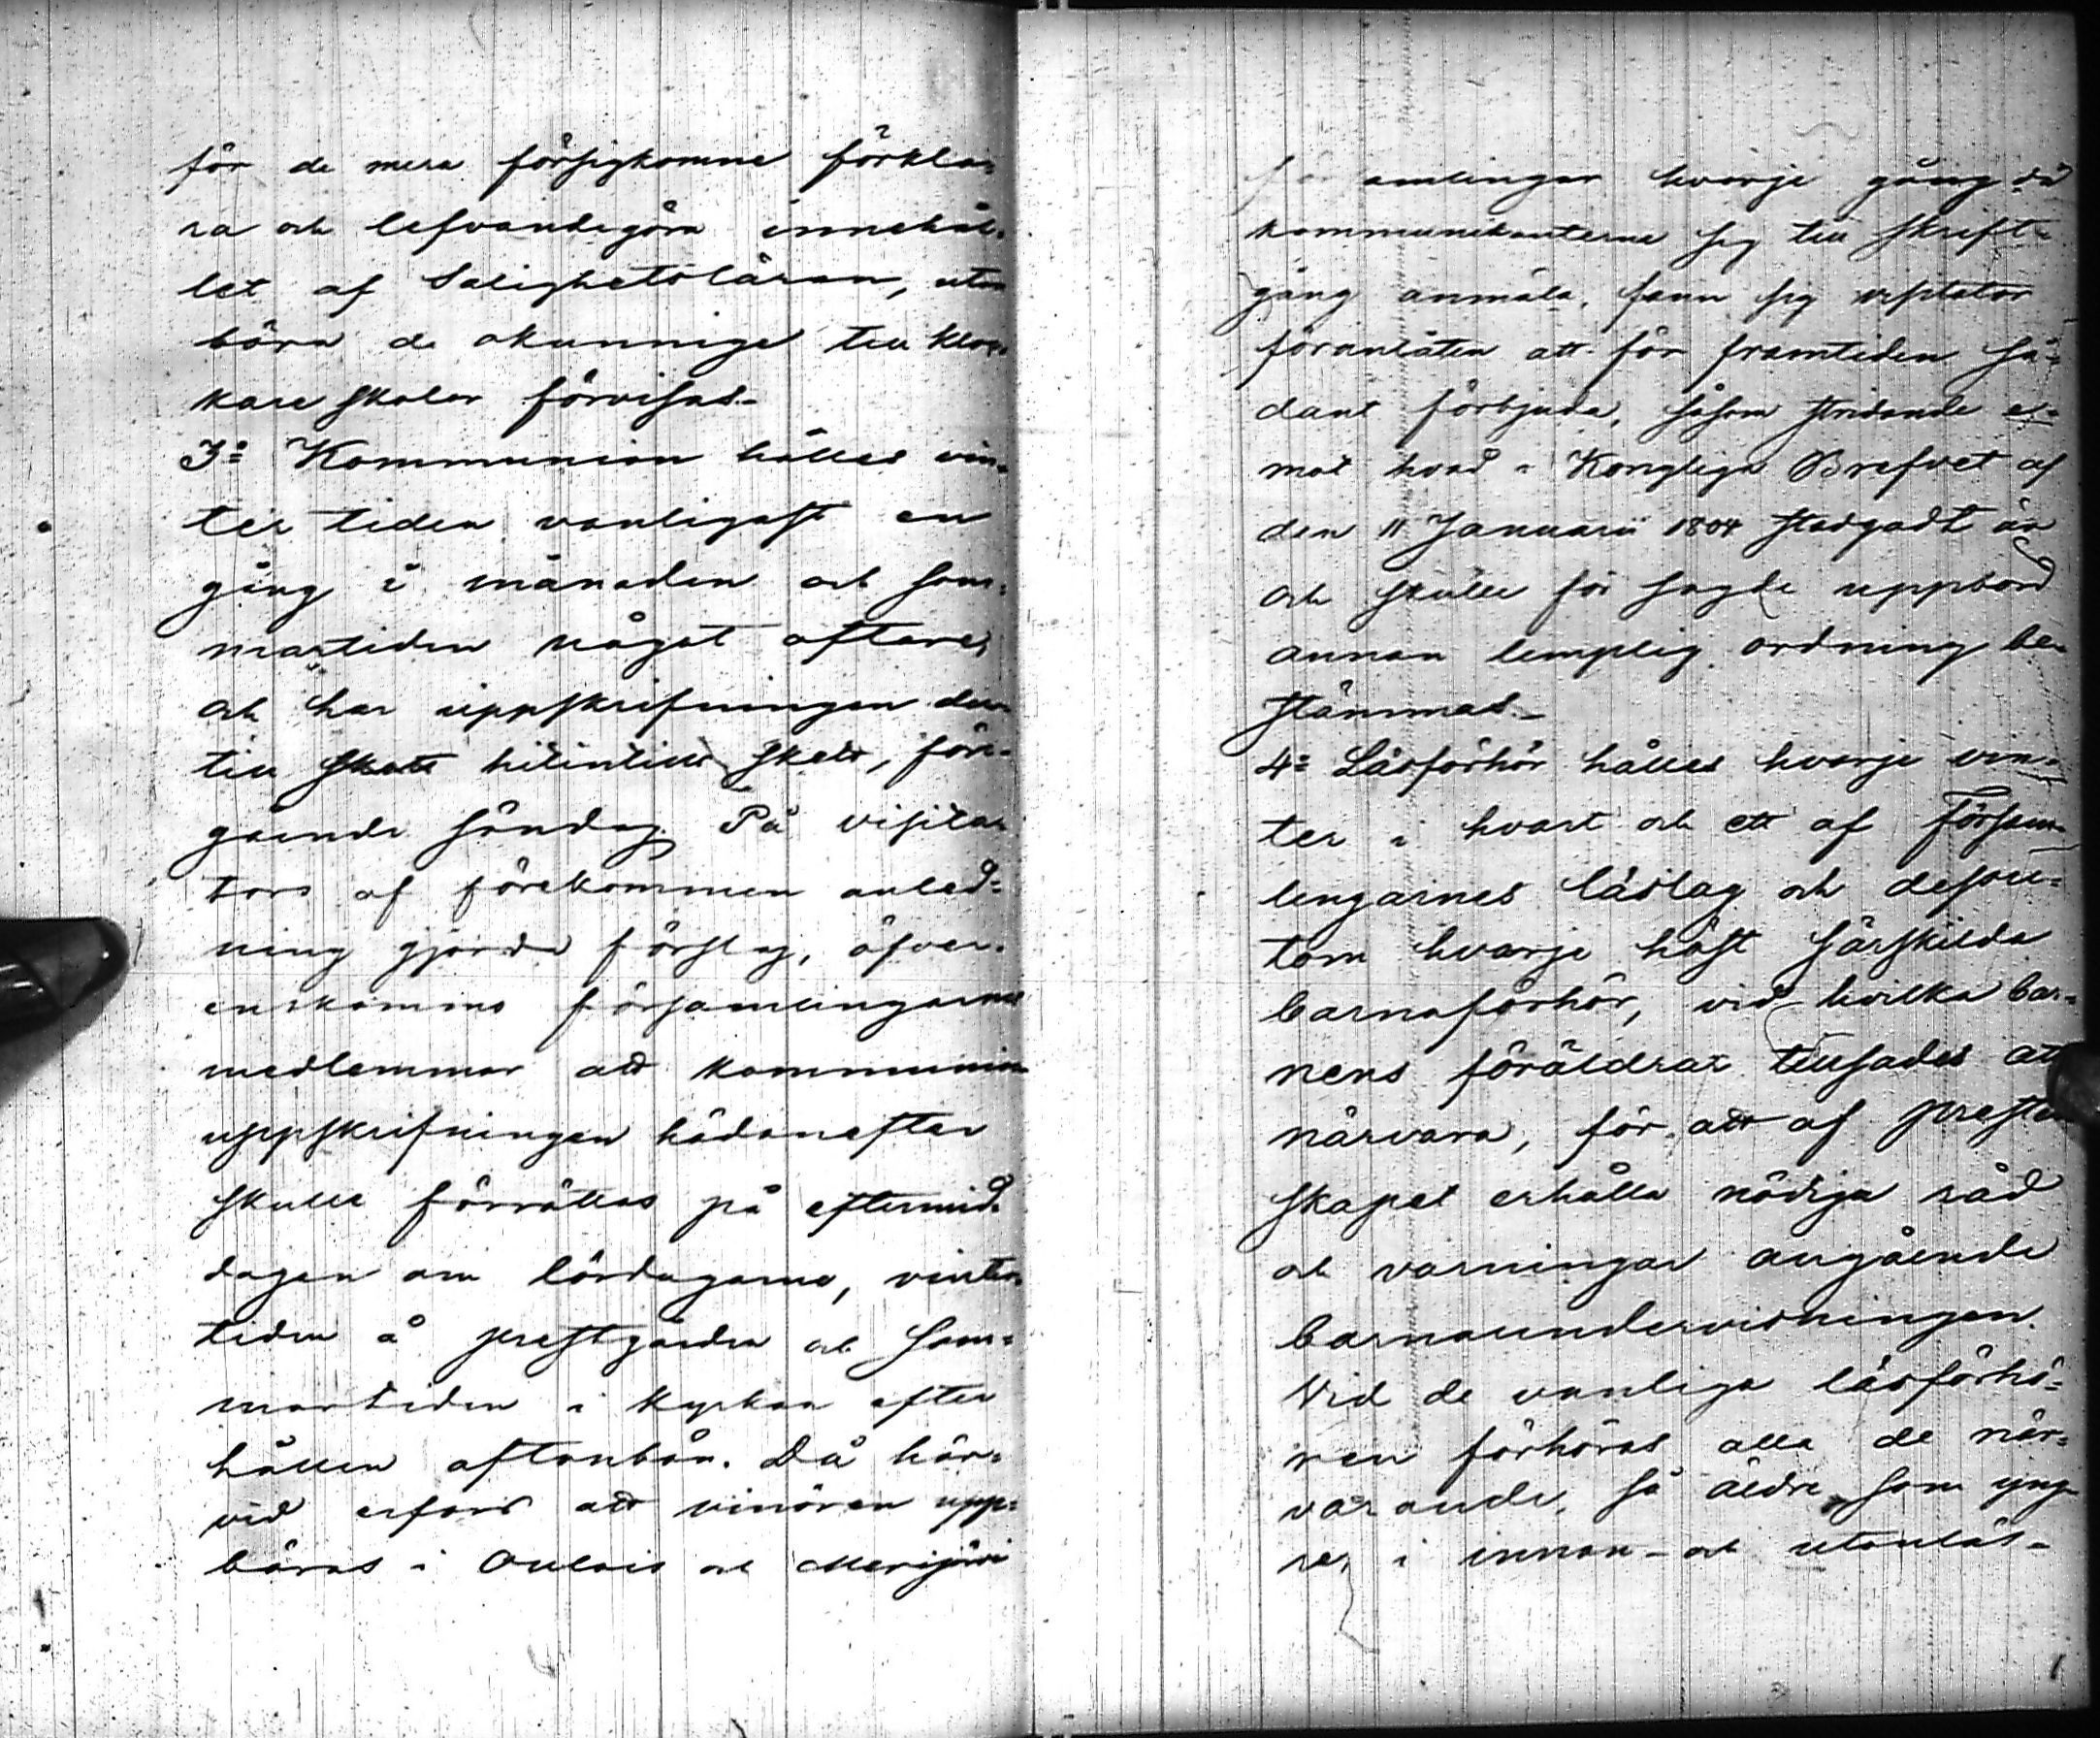 för de mera försigkomne förkla=
ra och lefvandegöra innehål=
let af Salighetsläran, utan
böra de okunnige till kloc=
kare skolor förvisas.
3:o Kommunion hålles vin=
ter tiden vanligast en
gång i månaden och som=
martiden något oftare,
och har uppskrifningen der
till skett hitintills skett, före=
gående söndag. På visita=
tors af förekommen anled=
ning gjorda förslag, öfver=
enskommo församlingarnes
medlemmar att kommunion
uppskrifningen hädanefter
skulle förrättas på eftermid=
dagen om lördagarne, vinter
tiden å prestgården och som=
martiden i kyrkan efter
hållen aftonbön. Då här=
vid erfors att vinören upp=
bäras i Oulais och Merijärvi
för amlingar hvarje gång då
kommunikanterne sig till skrift=
gång anmäla, fann sig visitator
föranlåten att för framtiden så=
dant förbjuda, såsom stridande e=
mot hvad i Kongliga Brefvet af
den 11 Januarii 1804 stadgadt är
och skulle för sagde uppbörd
annan lemplig ordning be=
stämmas.
4:o Läsförhör hålles hvarje vin=
ter i hvart och ett af Försam=
lingarnes läslag och dessu=
tom hvarje höst särskilda
barnaförhör, vid hvilka bar=
nens föräldrar tillsades att
närvara, för att af prester
skapet erhålla nödiga råd
och varningar angående
barnaundervisningen.
Vid de vanliga läsförhö=
ren förhöras alla de när=
varande, så äldre som yng=
re, i innan- och utanläs-